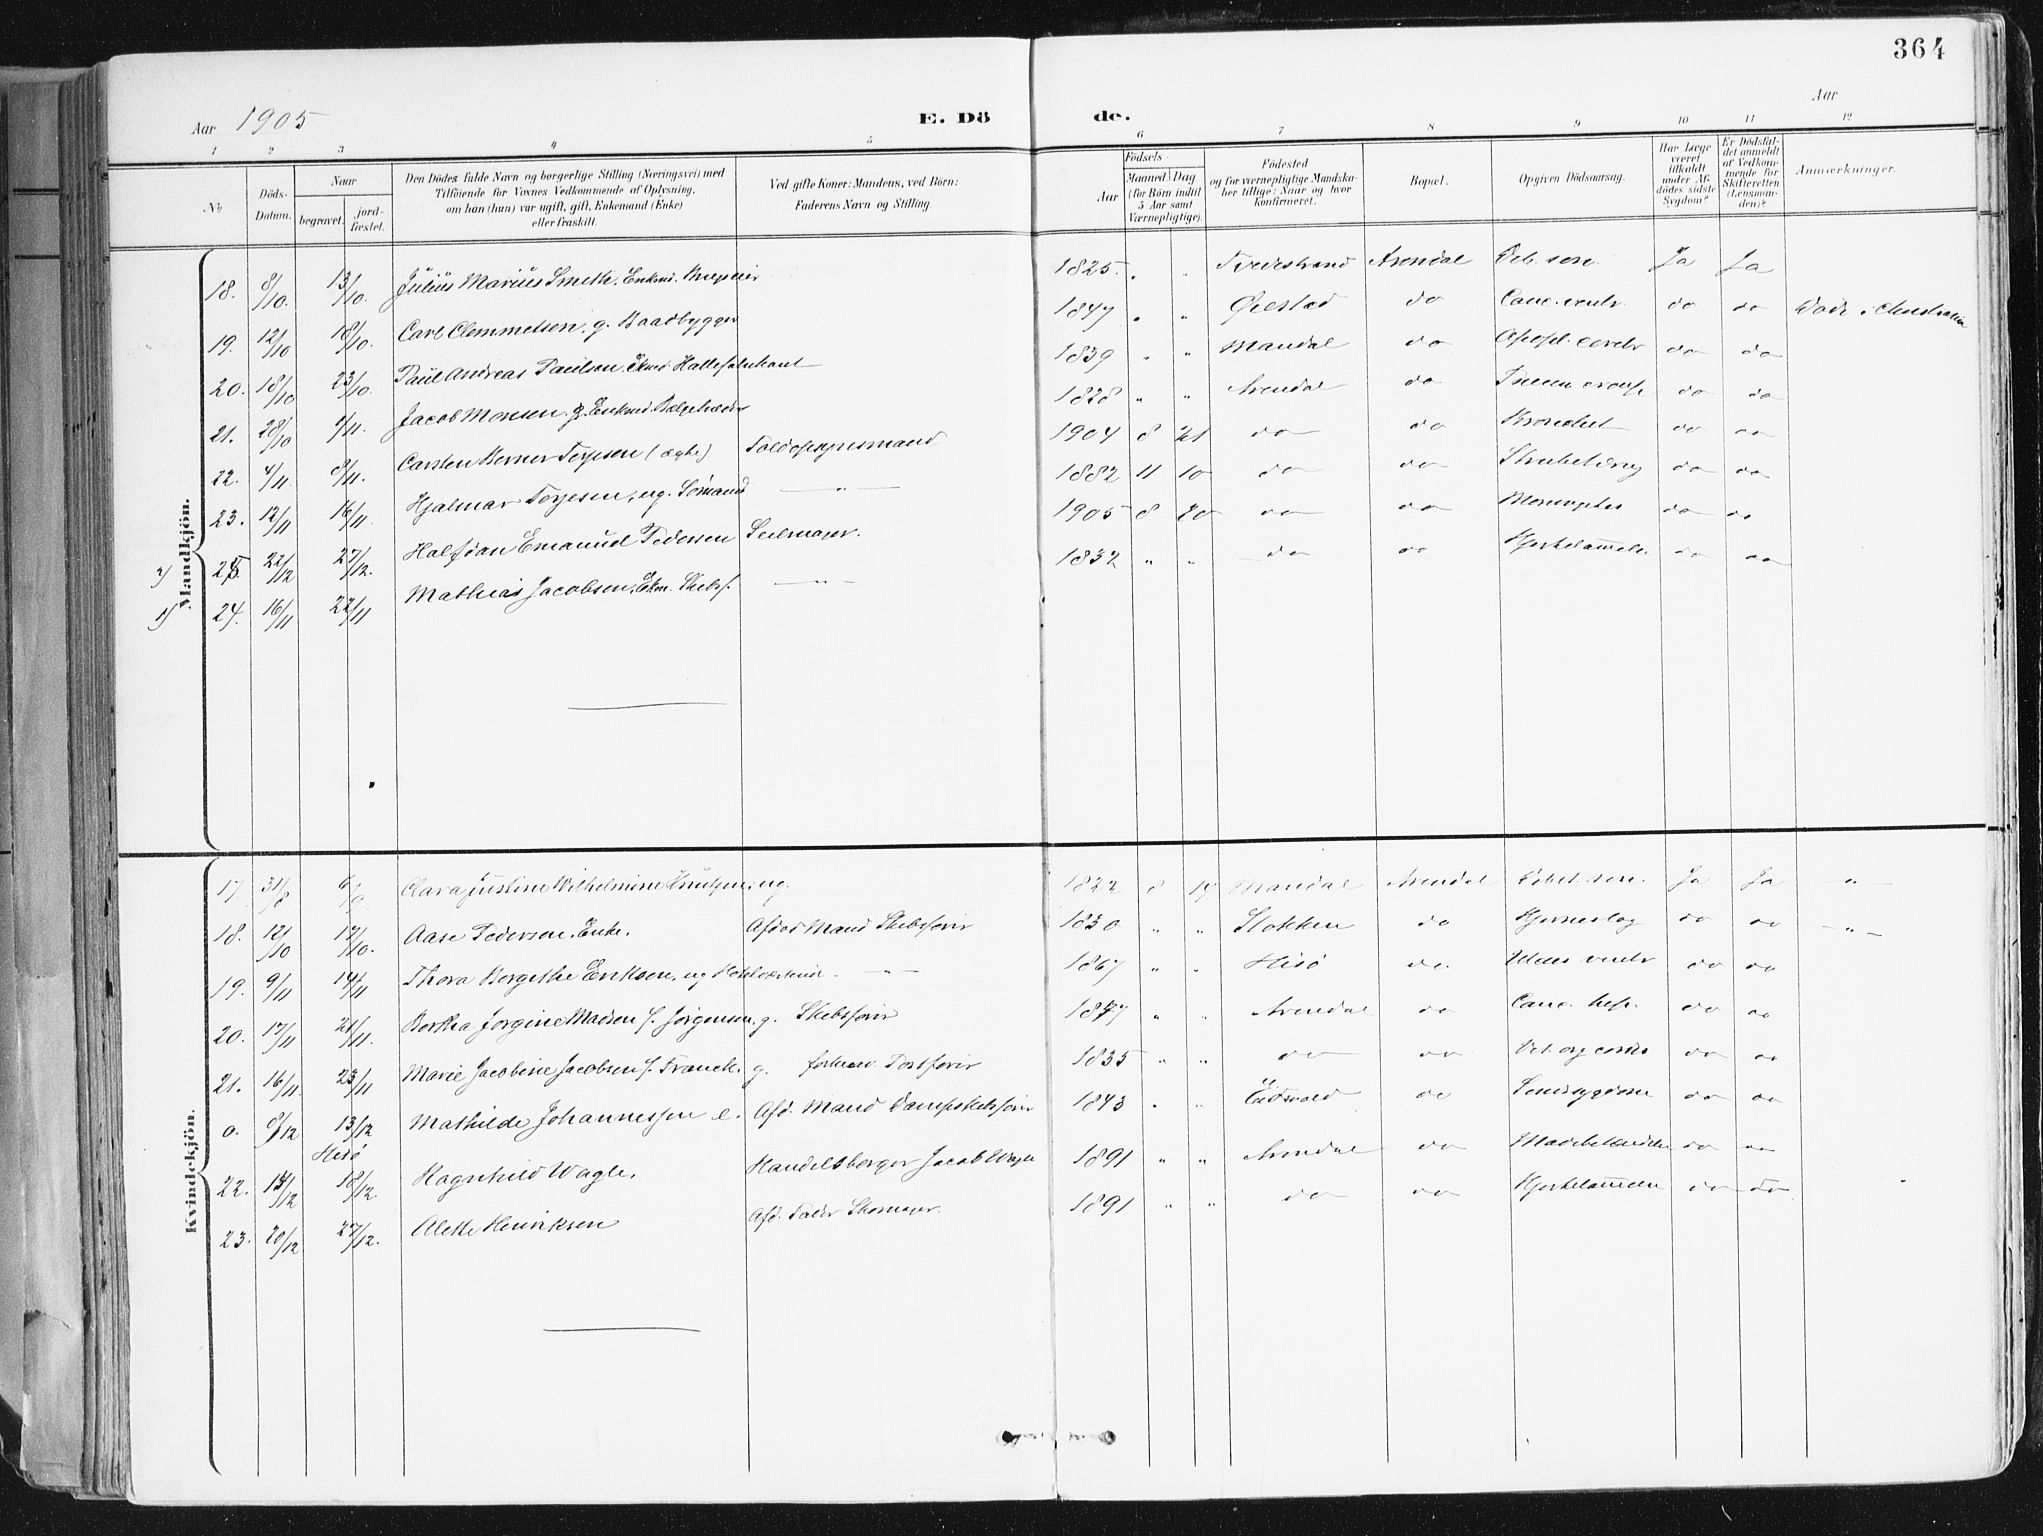 364
Aar 1905
E. Dö de.
Aar
1 2 3 4 5 6 7 8 9 10 11 12
№
Döds-Datum.
Naar
begravet.
jordfæstet.
Den Dödes fulde Navn og borgerlige Stilling (Næringsvei) med
Tilföiende for Voxnes Vedkommende af Oplysning,
om han (hun) var ugift, gift, Enkemand (Enke)
eller fraskilt.
Ved gifte Koner: Mandens, ved Börn:
Faderens Navn og Stilling.
Födsels-
Aar
Maaned Dag
(for Börn indtil
5 Aar samt
Værnepligtige).
Födested
og for værnepligtige Mandska-
ber tillige: Naar og hvor
konfirmeret.
Bopæl.
Opgiven Dödsaarsag.
Har Læge
været
tilkaldt
under Af-
dödes sidste
Sygdom?
Er Dödsfal-
det anmeldt
af Vedkom-
mende for
Skifteretten
(Lensman-
den)?
Anmærkninger.
Mandkjön.
18. 8/10. 13/10. Julius Marius Smith. Enkmd. 1825. " " Tvedestrand Arendal Deb. sen. Ja Ja
19. 12/10 18/10. Carl Clemmetsen, g. Baadbygger 1847 " " Øiestad do Canc. ventr. do do Døde i Christiania
20. 18/10 23/10. Paul Andreas Paulsen. 1839 " " Mandal do Apopl. cerebr do do
21. 28/10 4/11. Jacob Monsen. Enkmd. 1828 " " Arendal do do do
22. 4/11. 8/11. Carsten Berner Torjesen (ægte) Toldopsynsmand 1904 8 21 do do do do
23. 12/11 16/11. Hjalmar Torjesen, ug. Sømand — " — 1882 11 10 do do do do
2) 25. 22/12 27/12. Halfdan Emanuel Pedersen Seilmager. 1905 8 20 do do do do
1) 24. 16/11 22/11 Mathias Jacobsen, Ekm. Skibsf. — " — 1832 " " do do do do
Kvindekjön.
17. 31/8 6/9. Clara Justine Wilhelmine Knutzen, ug. 1822 8 19 Mandal Arendal Debil. sen. Ja Ja — " —
18. 12/10 17/10. Aase Pedersen. Enke. Afdød Mand Skibsfører 1830 " " Stokken do Hjerneslag do do — " —
19. 9/11 14/11 Thora Bergithe Eriksen, ug — " — 1867 " " Hisø do. Ulcus ventr do do
20. 17/11 21/11. Bertha Jørgine Madsen f. Jørgensen, g. Skibsfører 1847 " " Arendal do Canc. hep. do do
21. 16/11. 23/11 Marie Jacobine Jacobsen f. Franck. g. 1835 " " do do Vit. org cordis do do
0. 8/12 13/12 Hisø Mathilde Johannessen e. Afd. Mand Dampskibsfører 1843 " " Eidsvold do do do
22. 14/12 18/12. Ragnhild Wagle. Handelsborger Jacob Wagle 1891 " " Arendal do do do
23. 20/12 27/12. Alette Henriksen Afd. Fader Skomager. 1891 " " do do do do